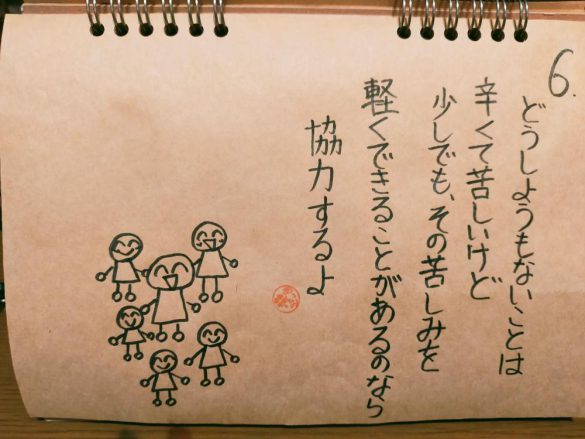 6.
どうしようもないことは
辛くて苦しいけど
少しでも、その苦しみを
軽くできることがあるのなら
協力するよ